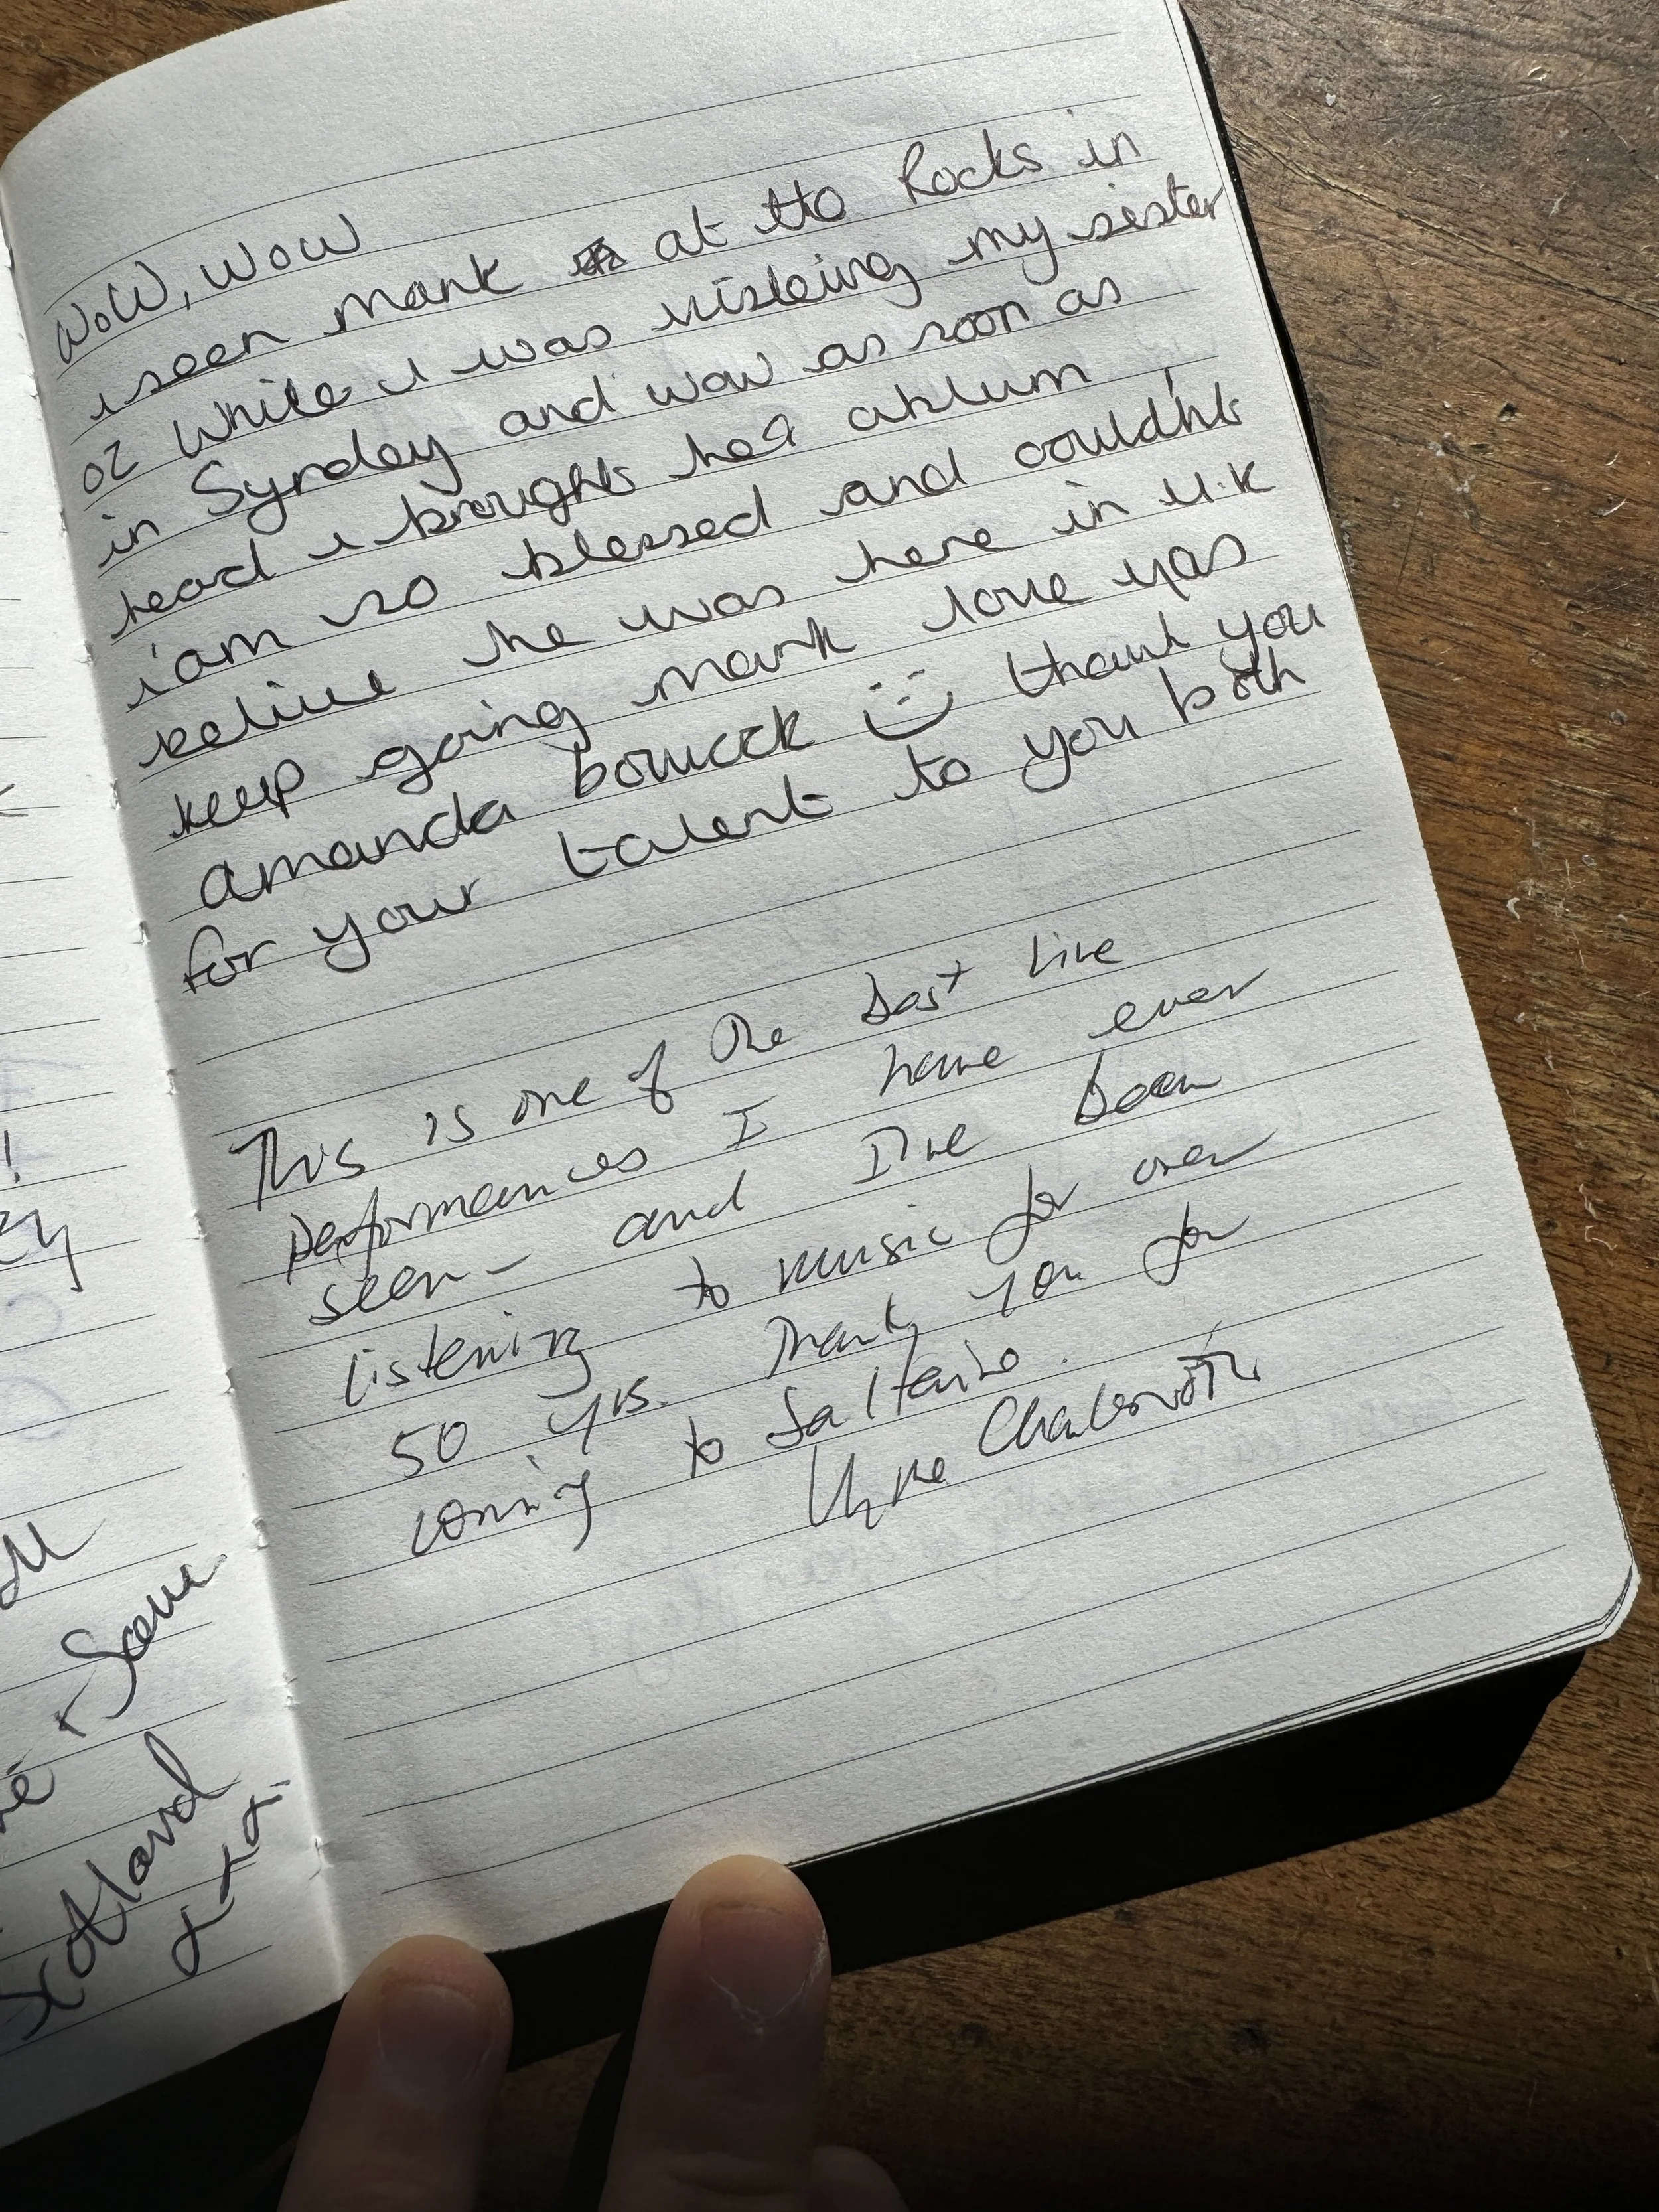 Wow, Wow
i seen mark at tto Rocks in
oz while i was visteing my sister
in Synday and wow as soon as
head i brought hea ablum
i'am so blessed and could'nt
belive he was here in U.K
keep going mark love yas
amanda :) thank you
for your talent to you both
This is one of the best live
performances I have ever
seen - and I've been
listening to music for over
50 yrs. Thank you for
coming to Saltaire.
Scotland
xxx.